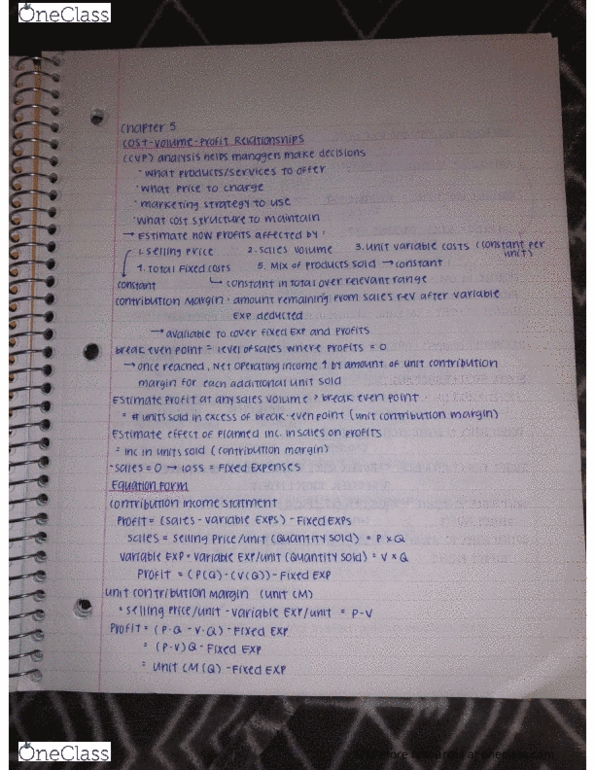 OneClass
Chapter 5
Cost-Volume-Profit Relationships
(CVP) analysis helps managers make decisions
· what products/services to offer
· what price to charge
· marketing strategy to use
· what cost structure to maintain
→ Estimate how profits affected by:
1. selling price 2. sales volume 3. unit variable costs (constant per unit)
4. Total Fixed costs 5. Mix of products sold → constant
constant ↳ constant in total over relevant range
contribution Margin · amount remaining from sales rev after variable
EXP deducted
→ available to cover fixed exp and profits
break even point = level of sales where profits = 0
→ once reached, net operating income ↑ by amount of unit contribution
margin for each additional unit sold
Estimate profit at any sales volume > break even point
= # units sold in excess of break-even point (unit contribution margin)
Estimate effect of planned inc. in sales on profits
= inc in units sold (contribution margin)
-sales = 0 → loss = Fixed Expenses
Equation Form
contribution income statment
Profit = (sales - variable exps) - Fixed exps
sales = selling price/unit (quantity sold) = P × Q
variable exp = variable exp/unit (quantity sold) = V × Q
Profit = (P(Q) - (V(Q)) - Fixed exp
unit contribution margin (unit CM)
= selling price/unit - variable exp/unit = P-V
Profit = (P·Q - V·Q) - Fixed exp
= (P-V)Q - Fixed exp
= unit CM(Q) - Fixed exp
OneClass
more resources at oneclass.com